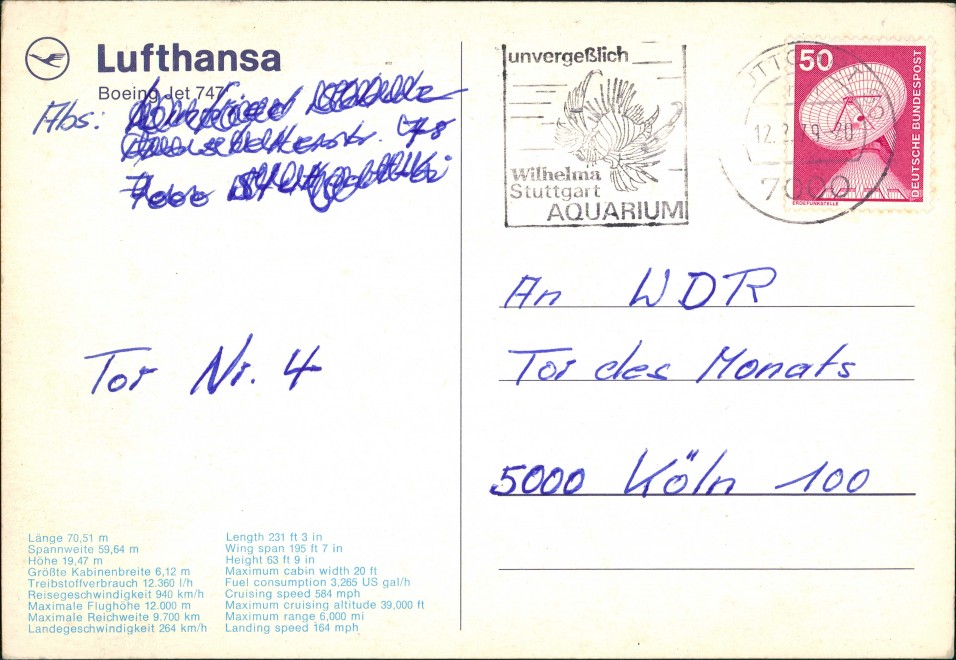 Lufthansa
Boeing Jet 747
Abs:
78
7000
unvergeßlich
Wilhelma
Stuttgart
AQUARIUM
7000
50
DEUTSCHE BUNDESPOST
ERDEFUNKSTELLE
An WDR
Tor des Monats
5000 Köln 100
Tor Nr. 4
Länge 70,51 m
Spannweite 59,64 m
Höhe 19,47 m
Größte Kabinenbreite 6,12 m
Treibstoffverbrauch 12.360 l/h
Reisegeschwindigkeit 940 km/h
Maximale Flughöhe 12.000 m
Maximale Reichweite 9.700 km
Landegeschwindigkeit 264 km/h
Length 231 ft 3 in
Wing span 195 ft 7 in
Height 63 ft 9 in
Maximum cabin width 20 ft
Fuel consumption 3,265 US gal/h
Cruising speed 584 mph
Maximum cruising altitude 39,000 ft
Maximum range 6,000 mi
Landing speed 164 mph